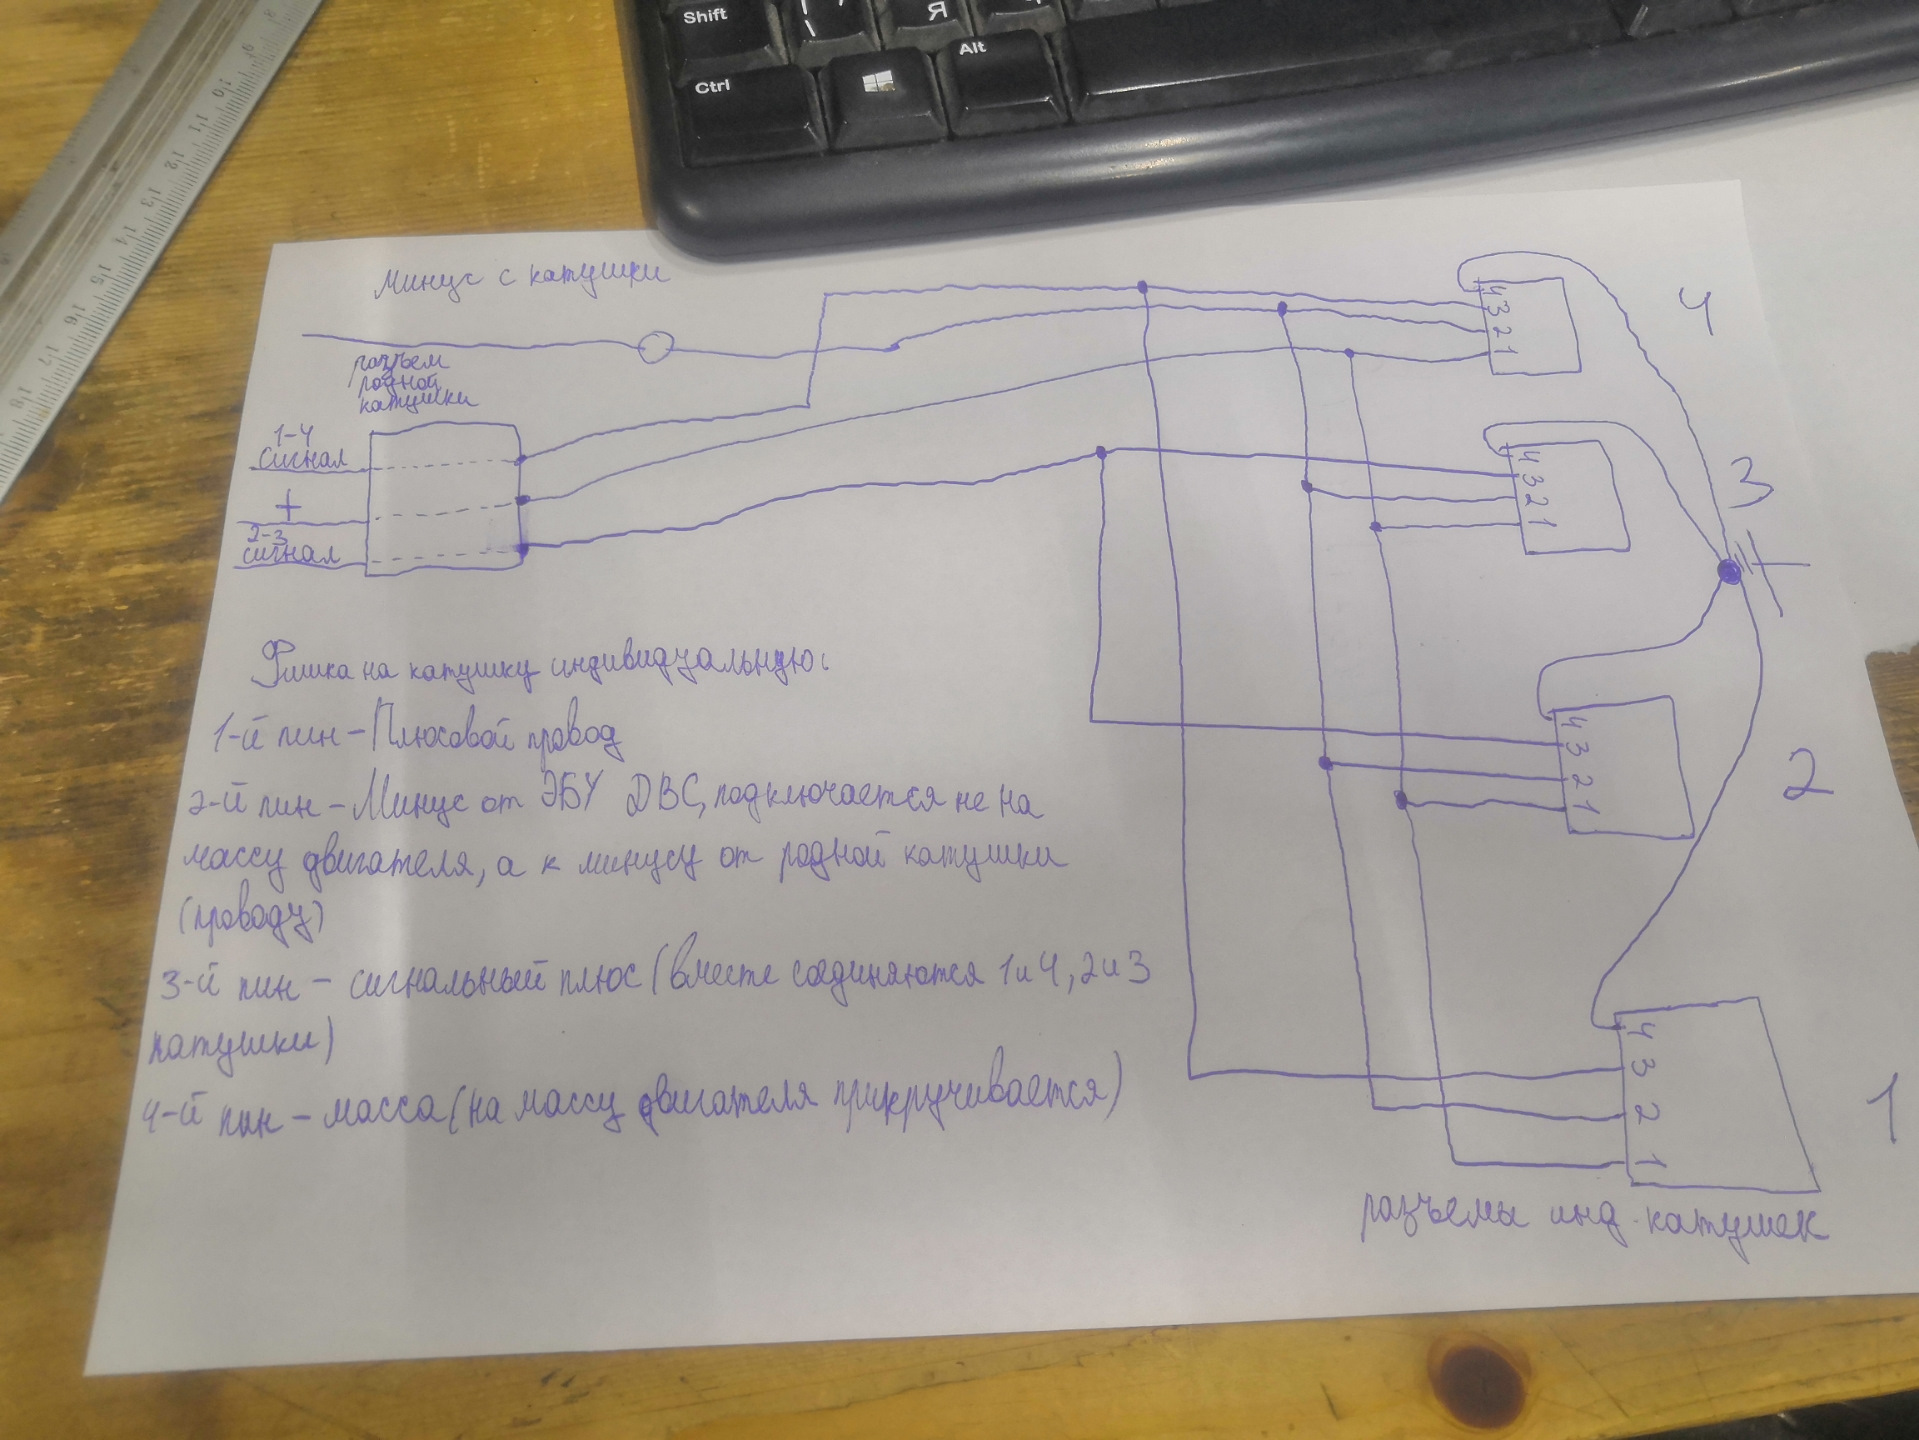 Shift
Я
Ctrl
Alt
9
10
11
12
13
14
15
16
17
18
Минус с катушки
разъем
родной
катушки
1-4
сигнал
+
2-3
сигнал
4
3
2
1
4
4
3
2
1
3
4
3
2
1
2
4
3
2
1
1
разъемы инд. катушек
Фишка на катушку индивидуальную:
1-й пин – Плюсовой провод
2-й пин – Минус от ЭБУ ДВС, подключается не на
массу двигателя, а к минусу от родной катушки
(проводу)
3-й пин – сигнальный плюс (вместе соединяются 1 и 4, 2 и 3
катушки)
4-й пин – масса (на массу двигателя прикручивается)